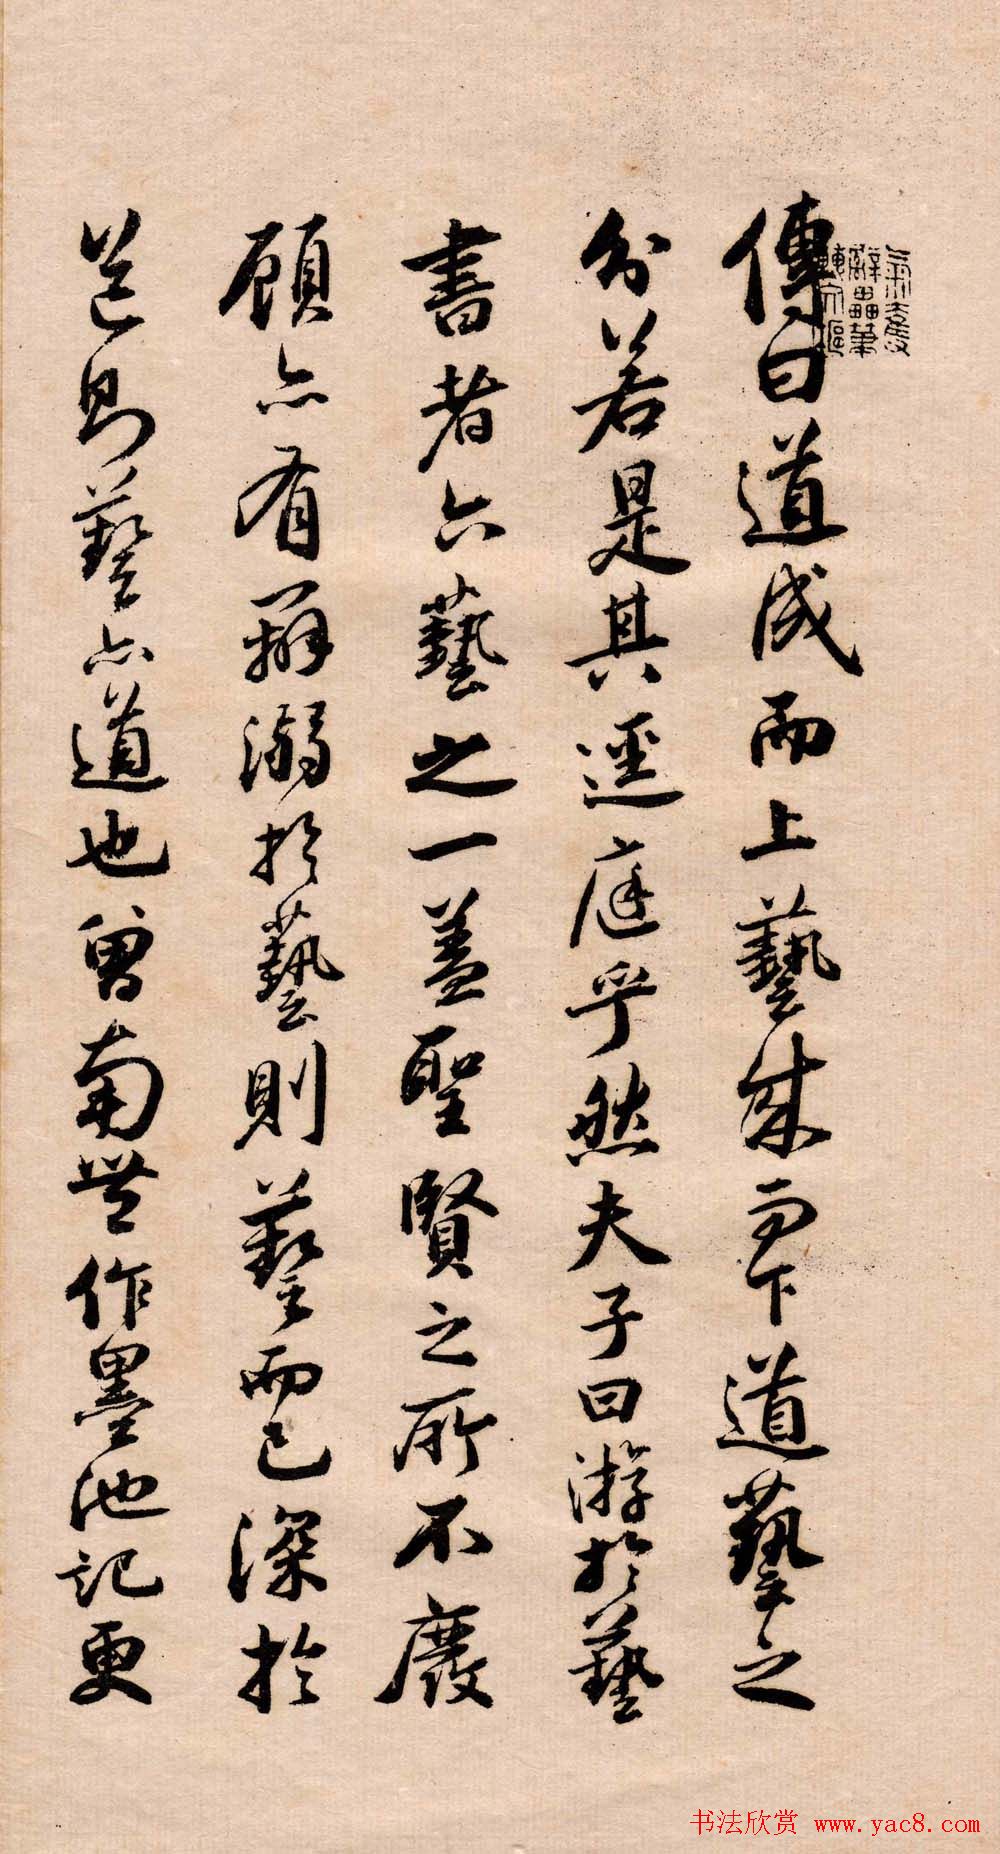 傳曰道成而上藝成而下道藝之
分若是其逕庭乎然夫子曰游於藝
書者六藝之一蓋聖賢之所不廢
顧亦有辨溺於藝則藝而已深於
道則藝亦道也曾南豐作墨池記更
书法欣赏 www.yac8.com